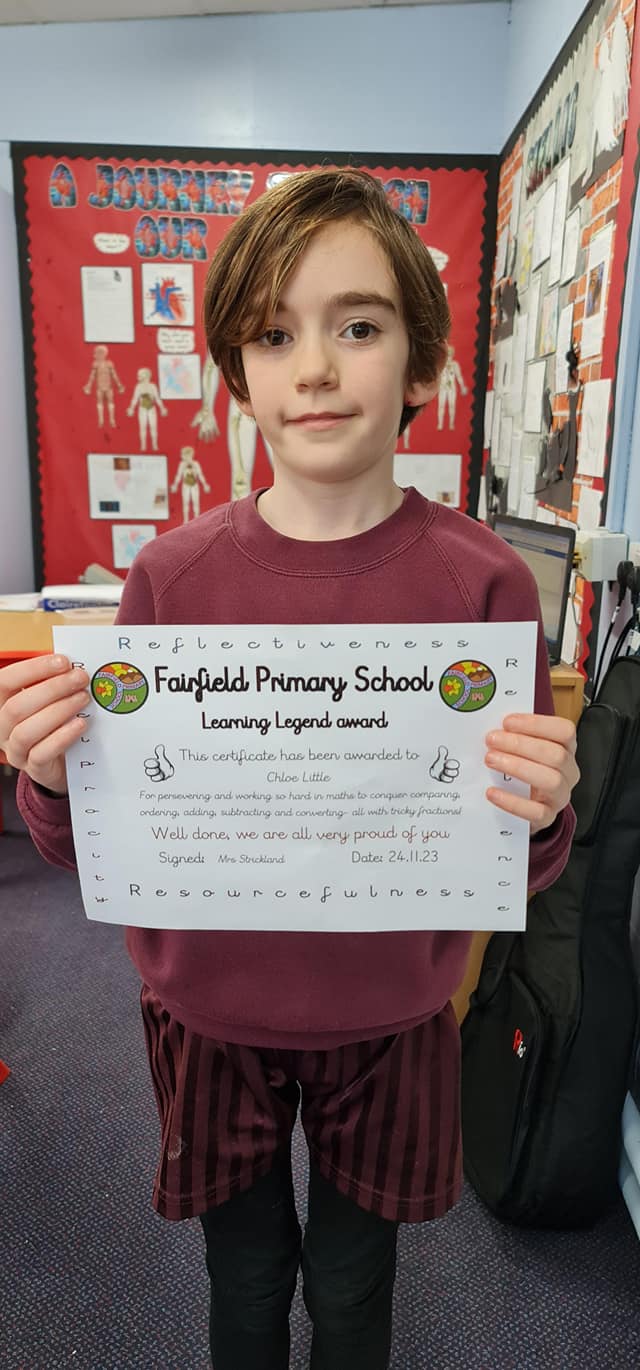 A JOURNEY
OUR
Reflectiveness
Fairfield Primary School
Learning Legend award
This certificate has been awarded to
Chloe Little
For persevering and working so hard in maths to conquer comparing,
ordering, adding, subtracting and converting- all with tricky fractions!
Well done, we are all very proud of you
Signed: Mrs Strickland Date: 24.11.23
Resourcefulness